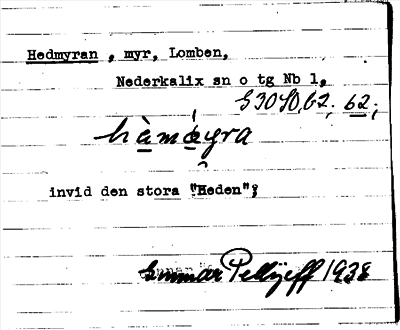 Hedmyran , myr, Lomben,
Nederkalix sn o tg Nb 1,
62;
invid den stora "Heden";
Gunnar Pellijeff 1938